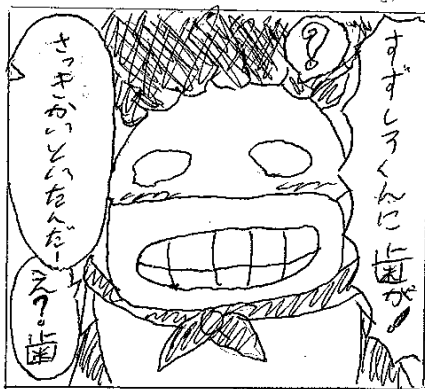 すずしろくんに歯が!
?
さっきかいといたんだー
え?。歯